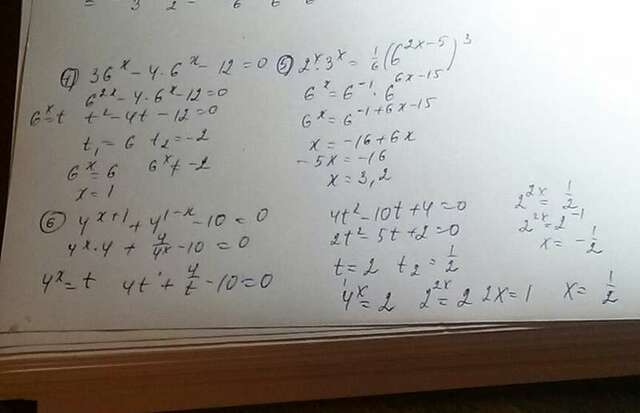 = 3 2 - 6 6 6
④ 36^x - 4·6^x - 12 = 0
6^2x - 4·6^x - 12 = 0
6^x = t t² - 4t - 12 = 0
t₁ = 6 t₂ = -2
6^x = 6 6^x ≠ -2
x = 1
⑤ 2^x·3^x = 1/6 (6^2x-5)³
6^x = 6^-1 · 6^6x-15
6^x = 6^-1+6x-15
x = -16 + 6x
-5x = -16
x = 3,2
⑥ 4^x+1 + 4^1-x - 10 = 0
4^x·4 + 4/4^x - 10 = 0
4^x = t 4t + 4/t - 10 = 0
4t² - 10t + 4 = 0
2t² - 5t + 2 = 0
t = 2 t₂ = 1/2
4^x = 2 2^2x = 2 2x = 1 x = 1/2
2^2x = 1/2
2^2x = 2^-1
x = -1/2